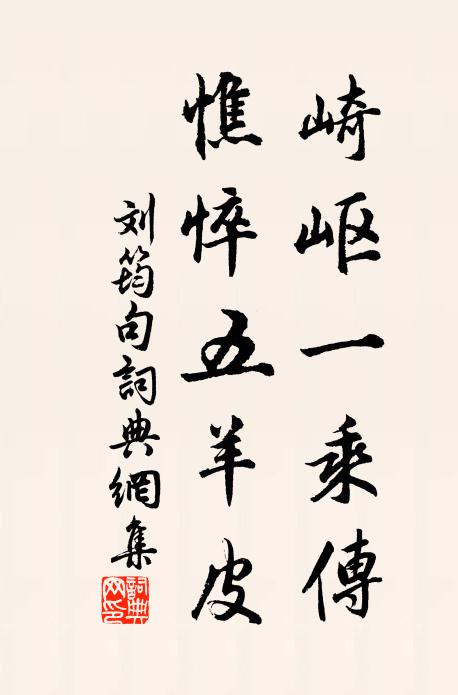 崎岖一乘傳
憔悴五羊皮
刘筠句詞典網集
詞典网印